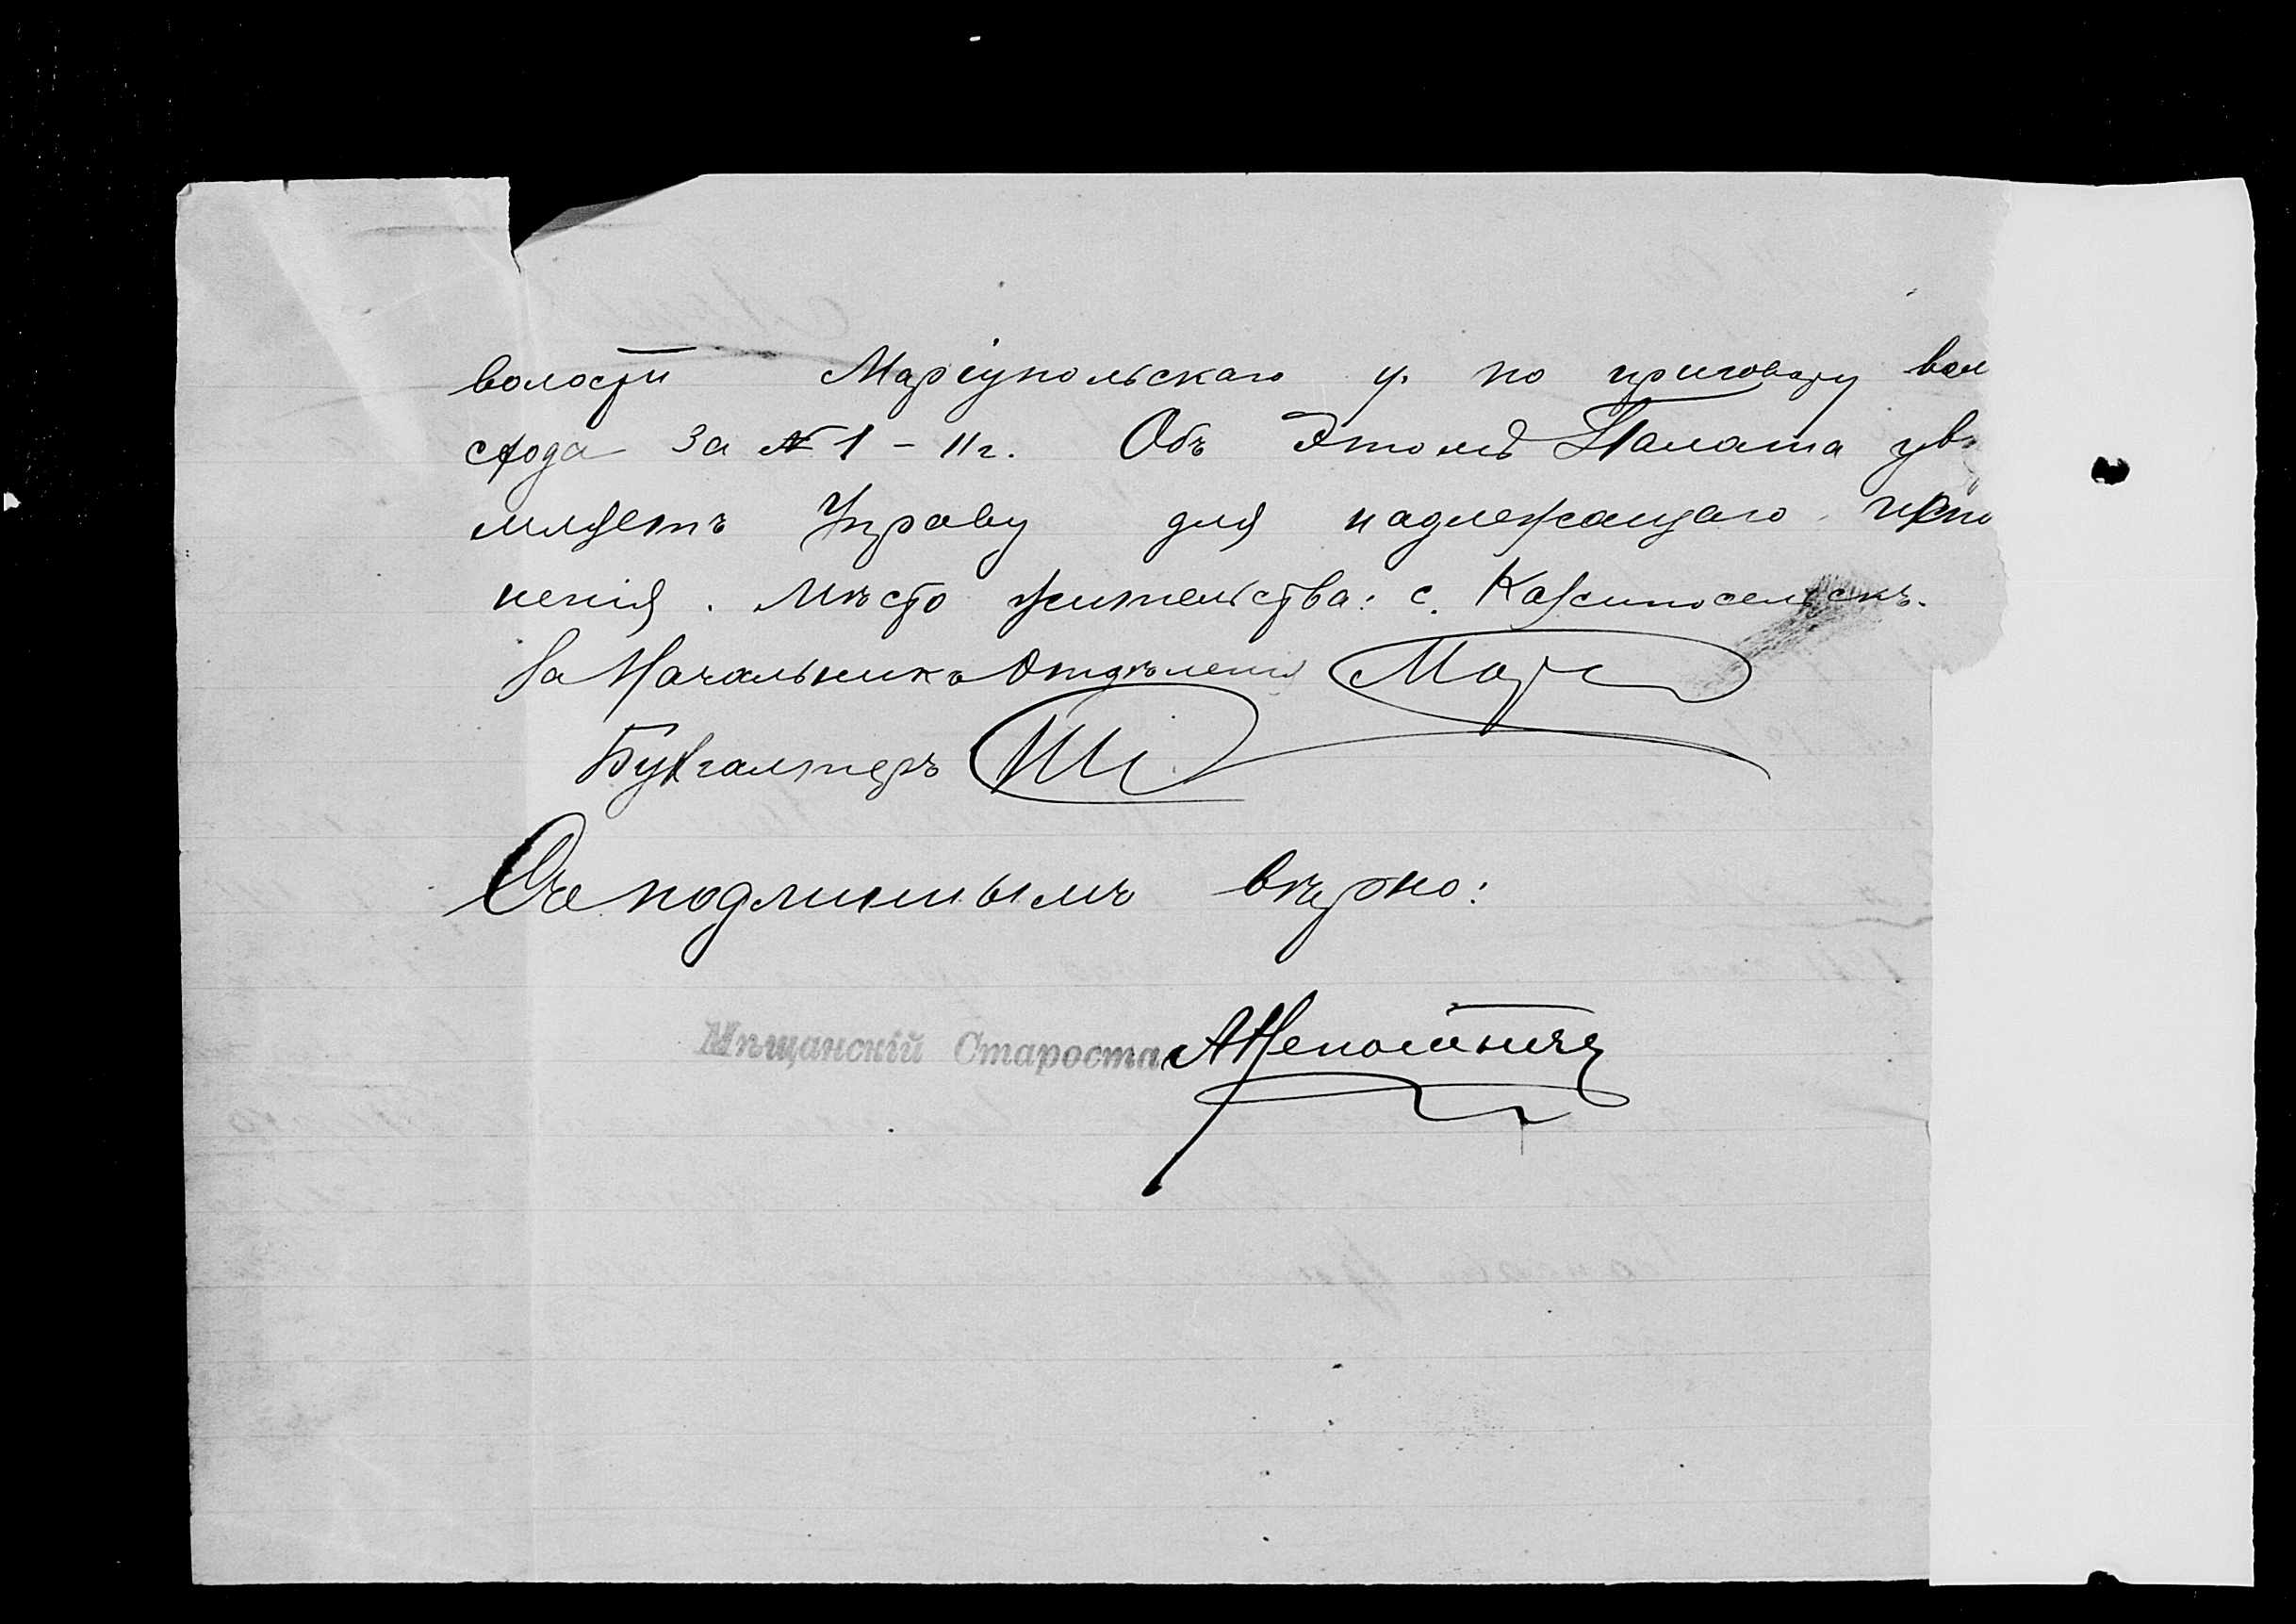 волости Маріупольскаго у. по приговору вол
схода за № 1 – 11 г. Объ этомъ Палата ув
мляетъ Управу для надлежащаго испо
ненія. Мѣсто жительства: с.
За Начальника Отдѣленія
Бухгалтеръ
Съ подлиннымъ вѣрно:
Мѣщанскій Староста